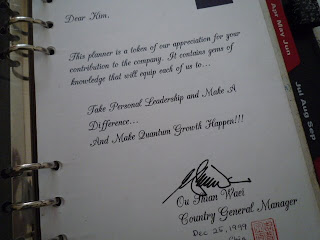 Dear Kim,
This planner is a token of our appreciation for your
contribution to the company. It contains gems of
knowledge that will equip each of us to...
Take Personal Leadership and Make A
Difference...
And Make Quantum Growth Happen!!!
Ou Shian Waei
Country General Manager
Dec 25, 1999
Apr May Jun
Jul Aug Sep